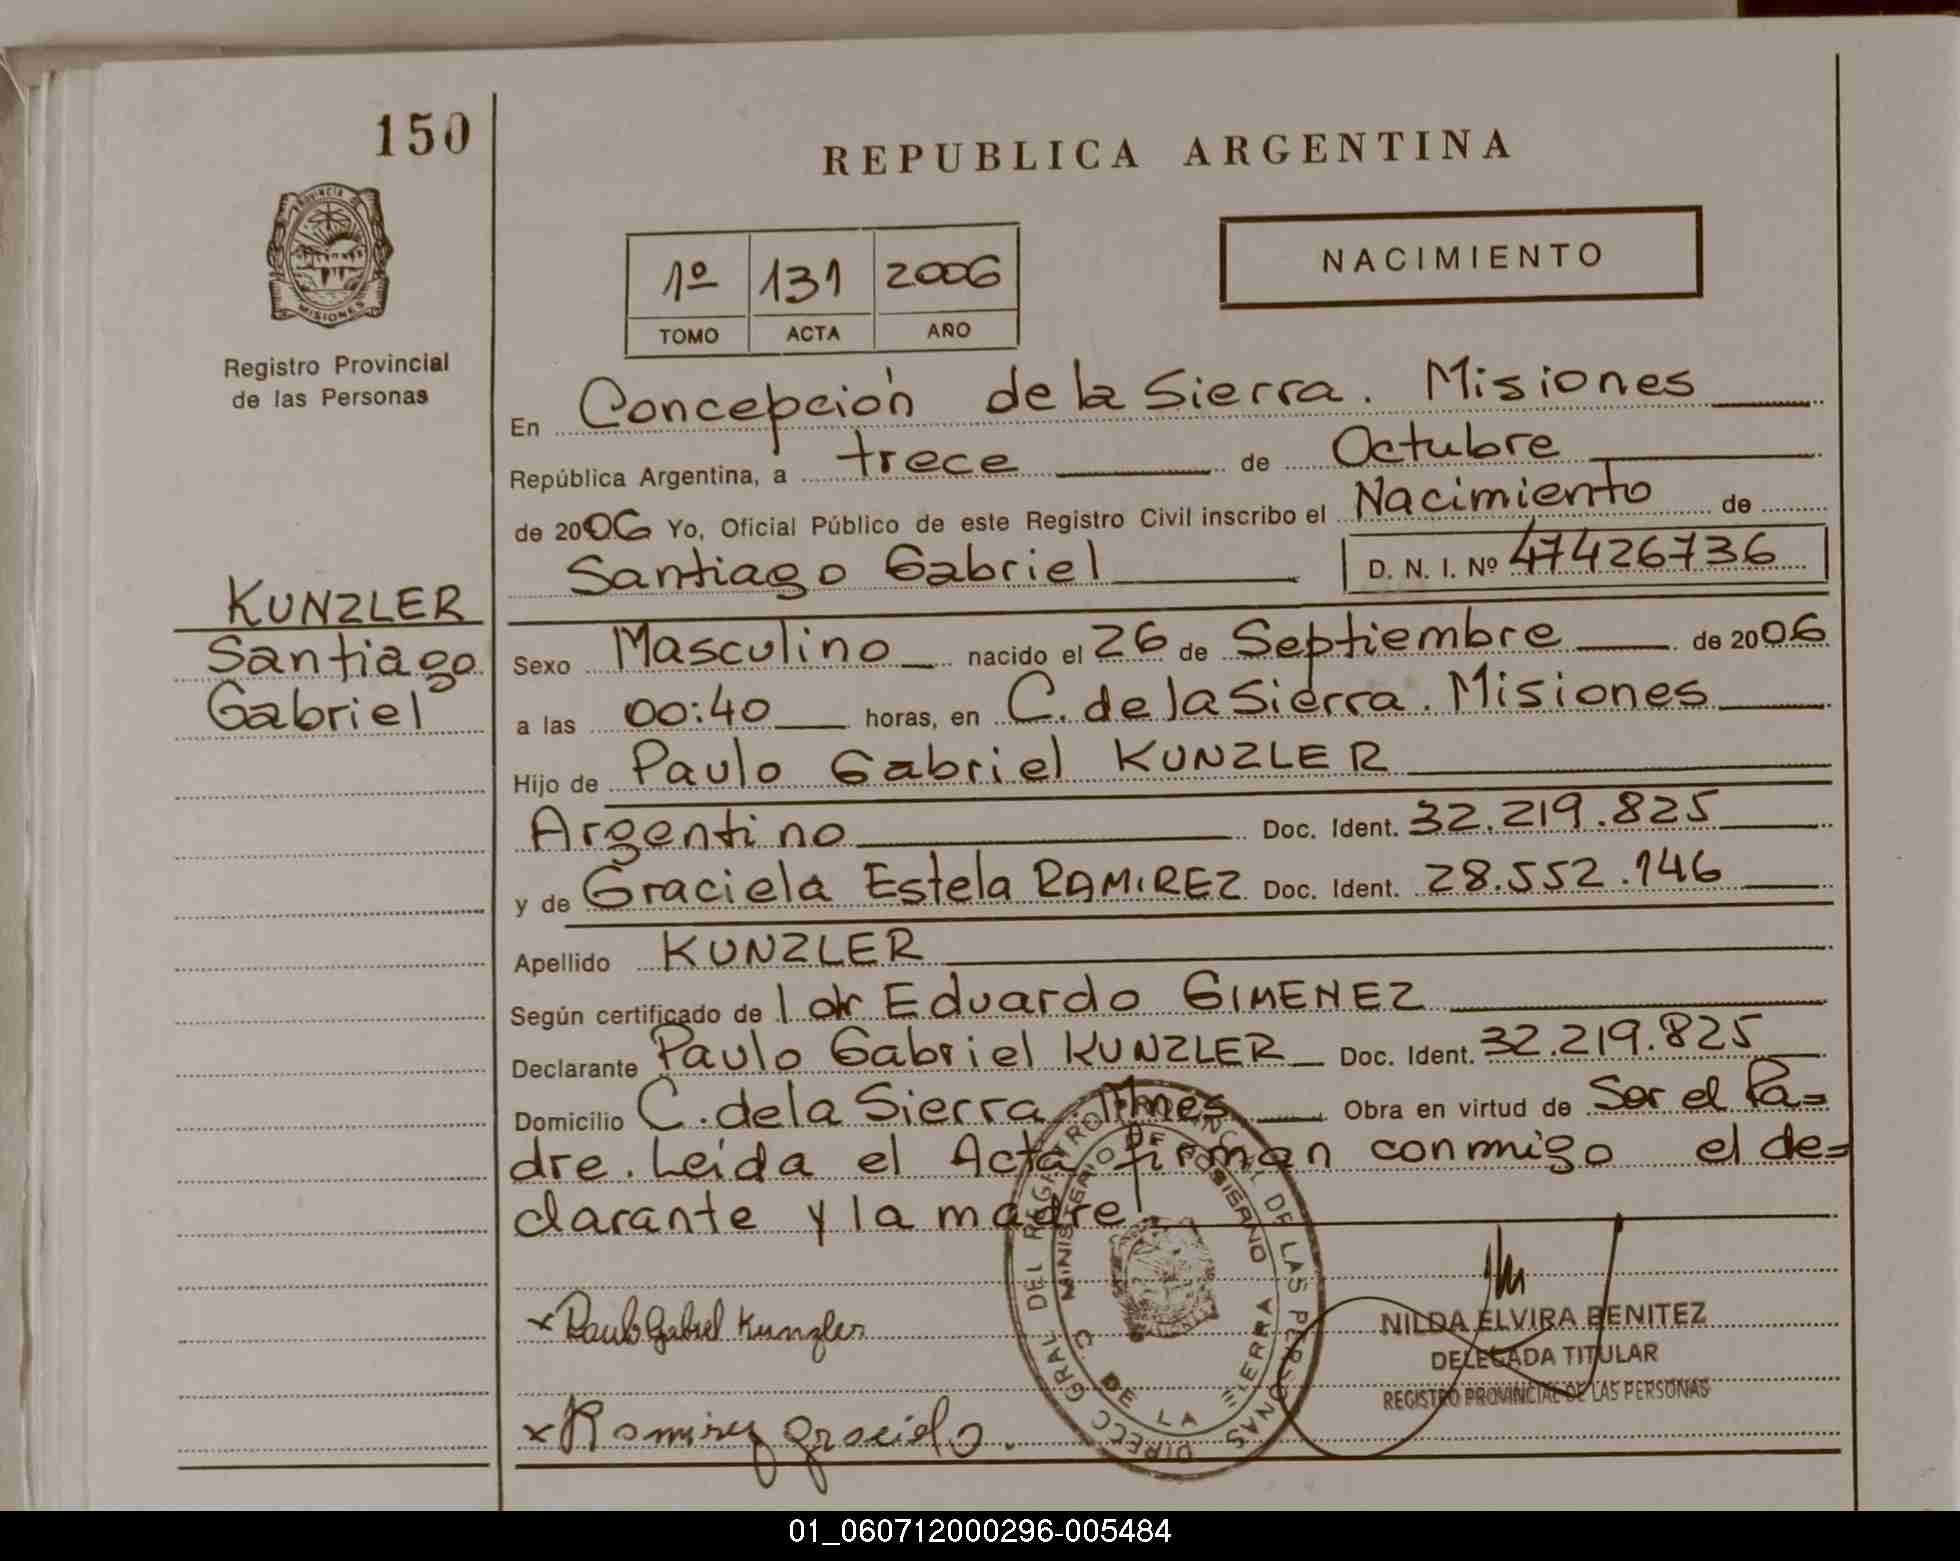 150
REPUBLICA ARGENTINA
PROVINCIA DE
MISIONES
Registro Provincial
de las Personas
NACIMIENTO
1º 131 2006
TOMO ACTA AÑO
En Concepción de la Sierra. Misiones
República Argentina, a trece de Octubre
de 2006 Yo, Oficial Público de este Registro Civil inscribo el Nacimiento de
Santiago Gabriel D. N. I. Nº 47426736
KUNZLER
Santiago
Gabriel
Sexo Masculino nacido el 26 de Septiembre de 2006
a las 00:40 horas, en C. de la Sierra. Misiones
Hijo de Paulo Gabriel KUNZLER
Argentino Doc. Ident. 32.219.825
y de Graciela Estela RAMIREZ Doc. Ident. 28.552.146
Apellido KUNZLER
Según certificado de Eduardo GIMENEZ
Declarante Paulo Gabriel KUNZLER Doc. Ident. 32.219.825
Domicilio C. de la Sierra Mnes Obra en virtud de Ser el Pa=
dre. Leída el Acta firman conmigo el de=
clarante y la madre.
x Paulo Gabriel Kunzler
x Ramirez graciela.
DIRECC GRAL DEL REGISTRO PROVINCIAL DE LAS PERSONAS
MINISTERIO DE GOBIERNO
C. DE LA SIERRA
NILDA ELVIRA BENITEZ
DELEGADA TITULAR
REGISTRO PROVINCIAL DE LAS PERSONAS
01_060712000296-005484